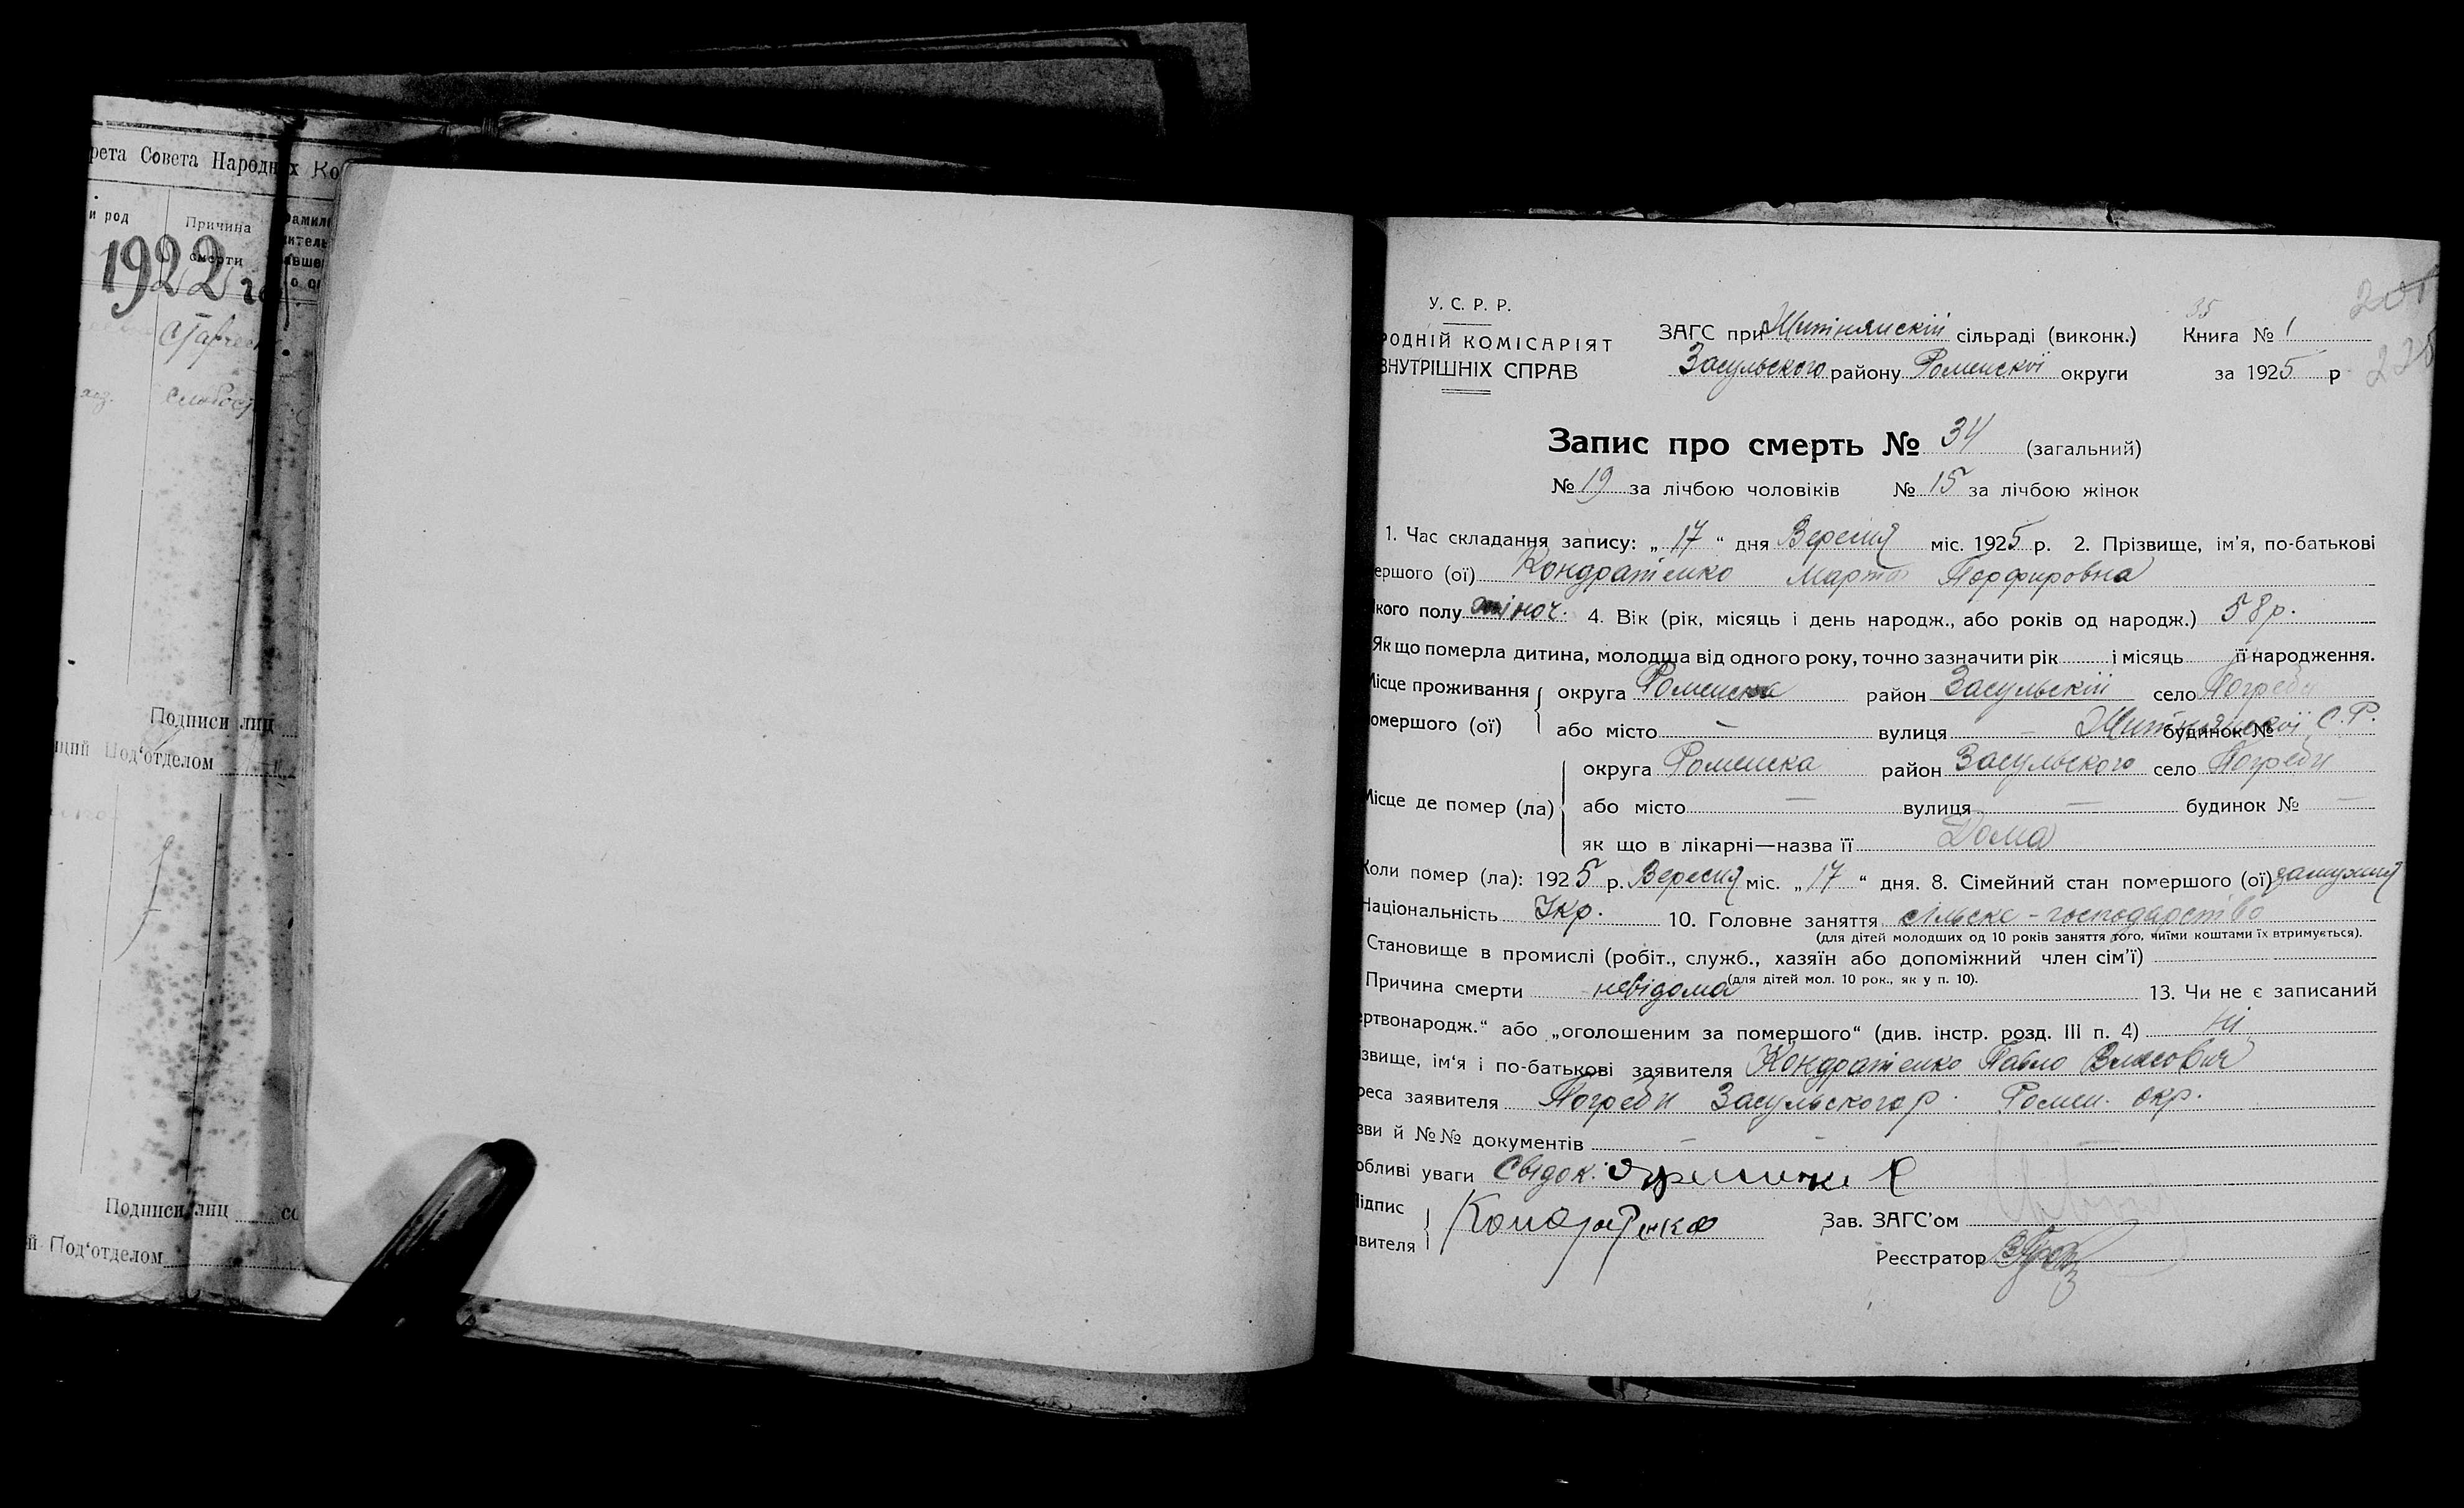 рета Совета Народных Ко
и род
Причина
смерти
1922 го
Подписи лиц
щий Под‘отделом
Подписи лиц со
й Под‘отделом
У. С. Р. Р.
РОДНІЙ КОМІСАРІЯТ
ВНУТРІШНІХ СПРАВ
ЗАГС при Житнянскій сільраді (виконк.)
Засульського району Роменскої округи
35
Книга № 1
за 1925 р
Запис про смерть № 34 (загальний)
№ 19 за лічбою чоловіків № 15 за лічбою жінок
1. Час складання запису: „ 17 “ дня Вересня міс. 1925 р. 2. Прізвище, ім’я, по-батькові
ершого (ої) Кондратенко Марта Порфировна
кого полу жіноч. 4. Вік (рік, місяць і день народж., або років од народж.) 58 р.
Як що померла дитина, молодша від одного року, точно зазначити рік і місяць її народження.
Місце проживання округа Роменска район Засульскій село Погреби
омершого (ої) або місто — вулиця — будинок № Житнянскої С.Р.
округа Роменска район Засульского село Погреби
Місце де помер (ла) або місто — вулиця — будинок № —
як що в лікарні—назва її Дома
Коли помер (ла): 1925 р. Вересня міс. „ 17 “ дня. 8. Сімейний стан помершого (ої) замужня
Національність Укр. 10. Головне заняття сільске-господарство
(для дітей молодших од 10 років заняття того, чиїми коштами їх втримується).
Становище в промислі (робіт., служб., хазяїн або допоміжний член сім’ї)
(для дітей мол. 10 рок., як у п. 10).
Причина смерти невідома 13. Чи не є записаний
ертвонародж.“ або „оголошеним за помершого“ (див. інстр. розд. III п. 4) ні
звище, ім‘я і по-батькові заявителя Кондратенко Павло Власович
реса заявителя Погреби Засульского р. Ромен. окр.
зви й №№ документів — — —
обливі уваги Свідок:
Підпис
явителя Кондратенко
Зав. ЗАГС’ом
Реєстратор